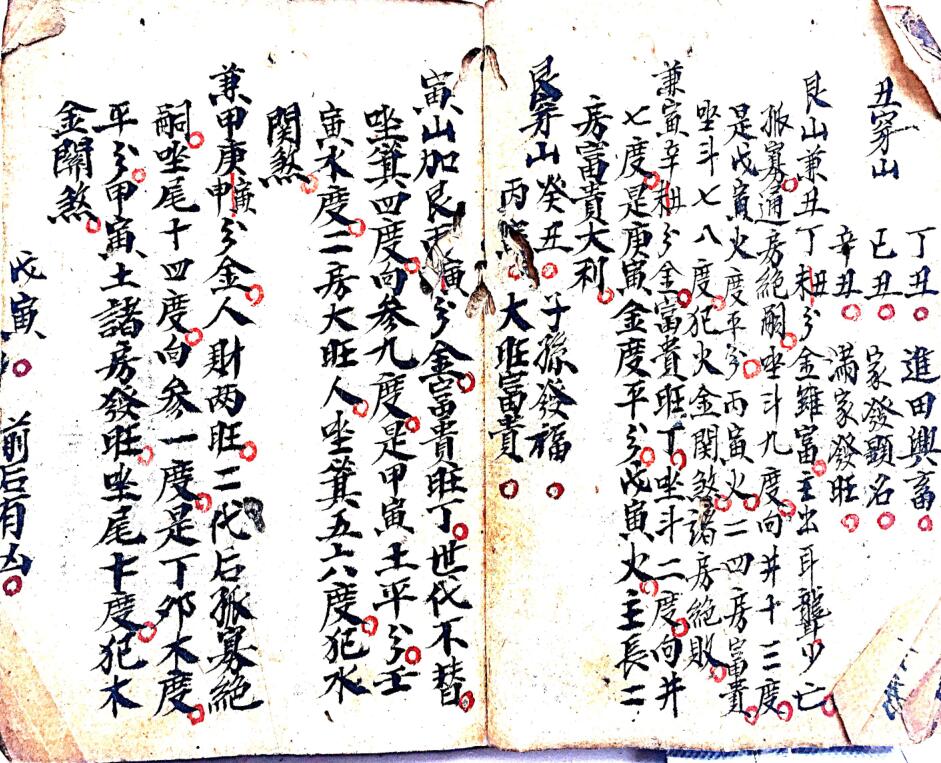 丑穿山
丁丑 進田興畜
已丑 家發顕名
辛丑 滿家發旺
艮山兼丑丁未分金雖富主出耳聾少亡
孤寡通房絕嗣坐斗九度向井十三度
是戊寅火度平分丙寅火二四房富貴
坐斗七八度犯火金関煞諸房絕敗
兼寅辛丑分金富貴旺丁坐斗二度向井
七度是庚寅金度平分戊寅火主長二
房富貴大利
艮穿山 癸丑 子孫發福
丙 大旺富貴
寅山加艮丙寅分金富貴旺丁世代不替
坐箕四度向參九度是甲寅土平分壬
寅水度二房大旺人坐箕五六度犯水
関煞
兼甲庚寅申分金人財两旺二代后孤寡絕
嗣坐尾十四度向參一度是丁卯木度
平分甲寅土諸房發旺坐尾十度犯木
金關煞
戊寅 前后有凶